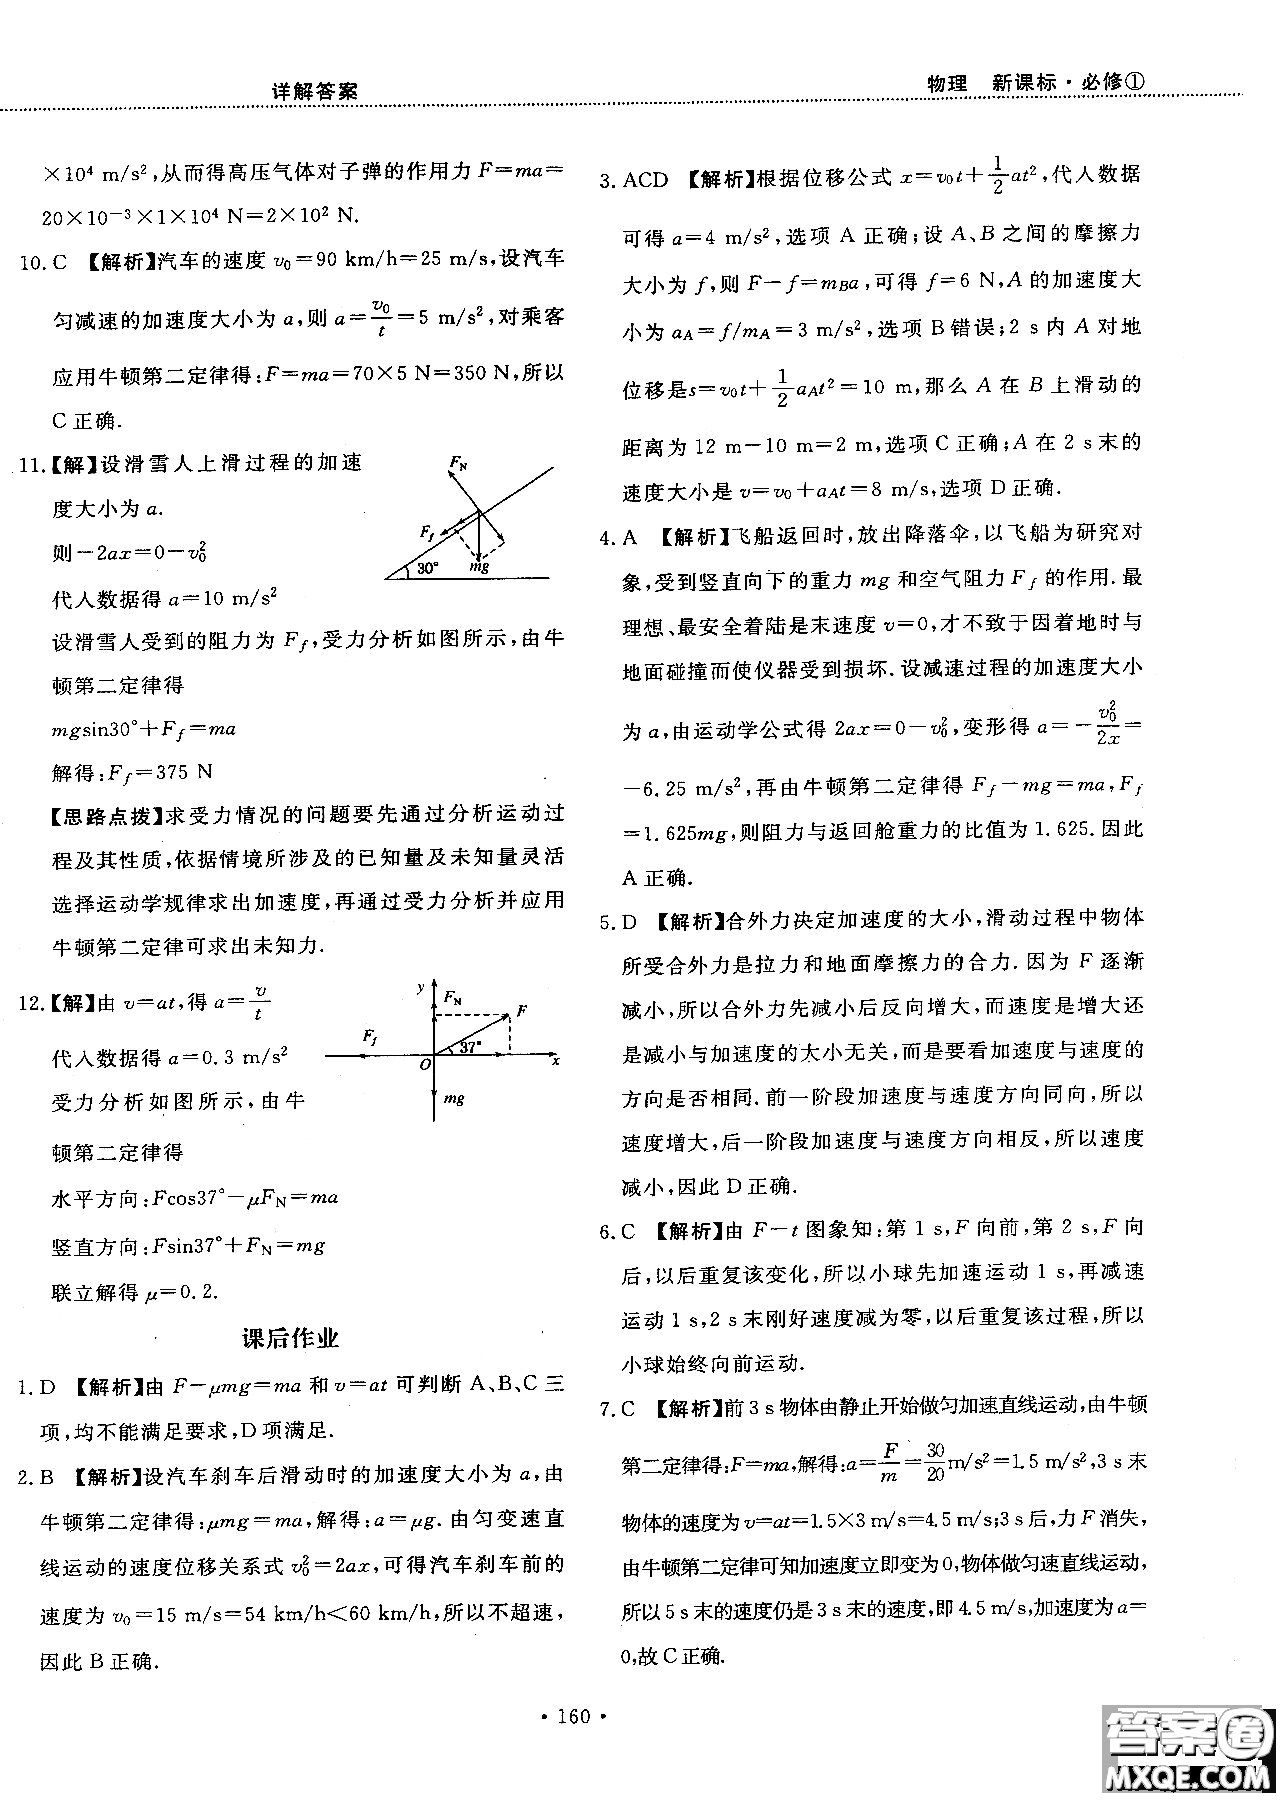 详解答案
物理 新课标·必修①
×10⁴ m/s²,从而得高压气体对子弹的作用力 F=ma=
20×10⁻³×1×10⁴ N=2×10² N.
10. C 【解析】汽车的速度 v₀=90 km/h=25 m/s,设汽车
匀减速的加速度大小为 a,则 a=v₀/t=5 m/s²,对乘客
应用牛顿第二定律得:F=ma=70×5 N=350 N,所以
C 正确.
11.【解】设滑雪人上滑过程的加速
度大小为 a.
则-2ax=0-v₀²
代入数据得 a=10 m/s²
设滑雪人受到的阻力为 Ff,受力分析如图所示,由牛
顿第二定律得
mgsin30°+Ff=ma
解得:Ff=375 N
FN
Ff
30°
mg
【思路点拨】求受力情况的问题要先通过分析运动过
程及其性质,依据情境所涉及的已知量及未知量灵活
选择运动学规律求出加速度,再通过受力分析并应用
牛顿第二定律可求出未知力.
12.【解】由 v=at,得 a=v/t
代入数据得 a=0.3 m/s²
受力分析如图所示,由牛
顿第二定律得
水平方向:Fcos37°-μFN=ma
竖直方向:Fsin37°+FN=mg
联立解得 μ=0.2.
y
FN
F
Ff
37°
O
x
mg
课后作业
1. D 【解析】由 F-μmg=ma 和 v=at 可判断 A、B、C 三
项,均不能满足要求,D项满足.
2. B 【解析】设汽车刹车后滑动时的加速度大小为 a,由
牛顿第二定律得:μmg=ma,解得:a=μg.由匀变速直
线运动的速度位移关系式 v₀²=2ax,可得汽车刹车前的
速度为 v₀=15 m/s=54 km/h<60 km/h,所以不超速,
因此 B 正确.
3. ACD 【解析】根据位移公式 x=v₀t+1/2at²,代入数据
可得 a=4 m/s²,选项 A 正确;设 A、B 之间的摩擦力
大小为 f,则 F-f=mBa,可得 f=6 N,A 的加速度大
小为 aA=f/mA=3 m/s²,选项 B 错误;2 s 内 A 对地
位移是s=v₀t+1/2aAt²=10 m,那么 A 在 B 上滑动的
距离为 12 m-10 m=2 m,选项 C 正确;A 在 2 s 末的
速度大小是 v=v₀+aAt=8 m/s,选项 D 正确.
4. A 【解析】飞船返回时,放出降落伞,以飞船为研究对
象,受到竖直向下的重力 mg 和空气阻力 Ff 的作用.最
理想、最安全着陆是末速度 v=0,才不致于因着地时与
地面碰撞而使仪器受到损坏.设减速过程的加速度大小
为 a,由运动学公式得 2ax=0-v₀²,变形得 a=-v₀²/2x=
-6.25 m/s²,再由牛顿第二定律得 Ff-mg=ma,Ff
=1.625mg,则阻力与返回舱重力的比值为 1.625.因此
A 正确.
5. D 【解析】合外力决定加速度的大小,滑动过程中物体
所受合外力是拉力和地面摩擦力的合力.因为 F 逐渐
减小,所以合外力先减小后反向增大,而速度是增大还
是减小与加速度的大小无关,而是要看加速度与速度的
方向是否相同.前一阶段加速度与速度方向同向,所以
速度增大,后一阶段加速度与速度方向相反,所以速度
减小,因此 D 正确.
6. C 【解析】由 F-t 图象知:第 1 s,F 向前,第 2 s,F 向
后,以后重复该变化,所以小球先加速运动 1 s,再减速
运动 1 s,2 s 末刚好速度减为零,以后重复该过程,所以
小球始终向前运动.
7. C 【解析】前 3 s 物体由静止开始做匀加速直线运动,由牛顿
第二定律得:F=ma,解得:a=F/m=30/20 m/s²=1.5 m/s²,3 s 末
物体的速度为 v=at=1.5×3 m/s=4.5 m/s;3 s 后,力 F 消失,
由牛顿第二定律可知加速度立即变为0,物体做匀速直线运动,
所以 5 s 末的速度仍是 3 s 末的速度,即 4.5 m/s,加速度为 a=
0,故 C 正确.
· 160 ·
答案圈
MXQE.COM